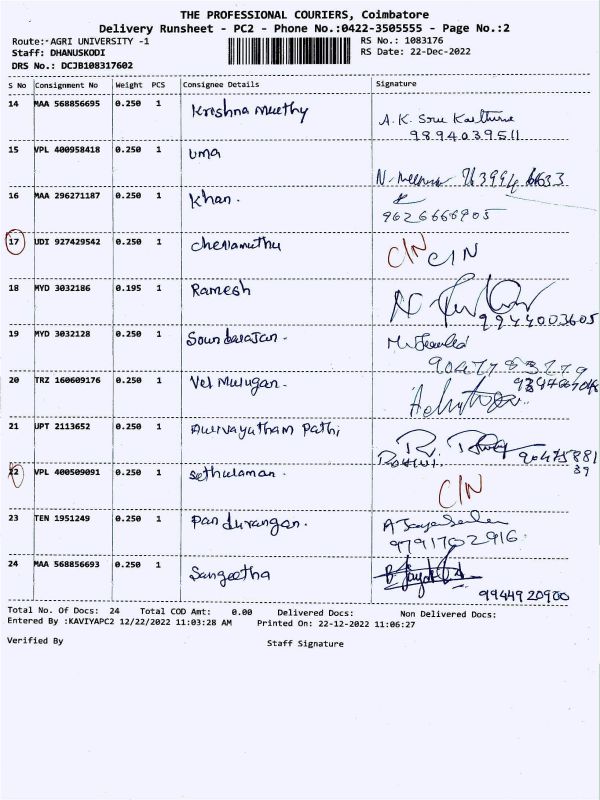 THE PROFESSIONAL COURIERS, Coimbatore
Delivery Runsheet - PC2 - Phone No.:0422-3505555 - Page No.:2
Route:-AGRI UNIVERSITY -1 RS No.: 1083176
Staff: DHANUSKODI RS Date: 22-Dec-2022
DRS No.: DCJB108317602
S No Consignment No Weight PCS Consignee Details Signature
14 MAA 568856695 0.250 1 Krishna Murthy A. K.
9894039511
15 VPL 400958418 0.250 1 uma
N.
16 MAA 296271187 0.250 1 Khan.
9626666905
17 UDI 927429542 0.250 1 chennamuthu C/N C/N
18 MYD 3032186 0.195 1 Ramesh
9944003605
19 MYD 3032128 0.250 1 Soundarajan.
20 TRZ 160609176 0.250 1 Vel Murugan.
21 UPT 2113652 0.250 1 Pathi
ROHINI. 90475881
39
22 VPL 400509091 0.250 1 sethulaman. C/N
23 TEN 1951249 0.250 1 Pandurangan.
9791702916
24 MAA 568856693 0.250 1 Sangeetha
9944920900
Total No. Of Docs: 24 Total COD Amt: 0.00 Delivered Docs: Non Delivered Docs:
Entered By :KAVIYAPC2 12/22/2022 11:03:28 AM Printed On: 22-12-2022 11:06:27
Verified By Staff Signature